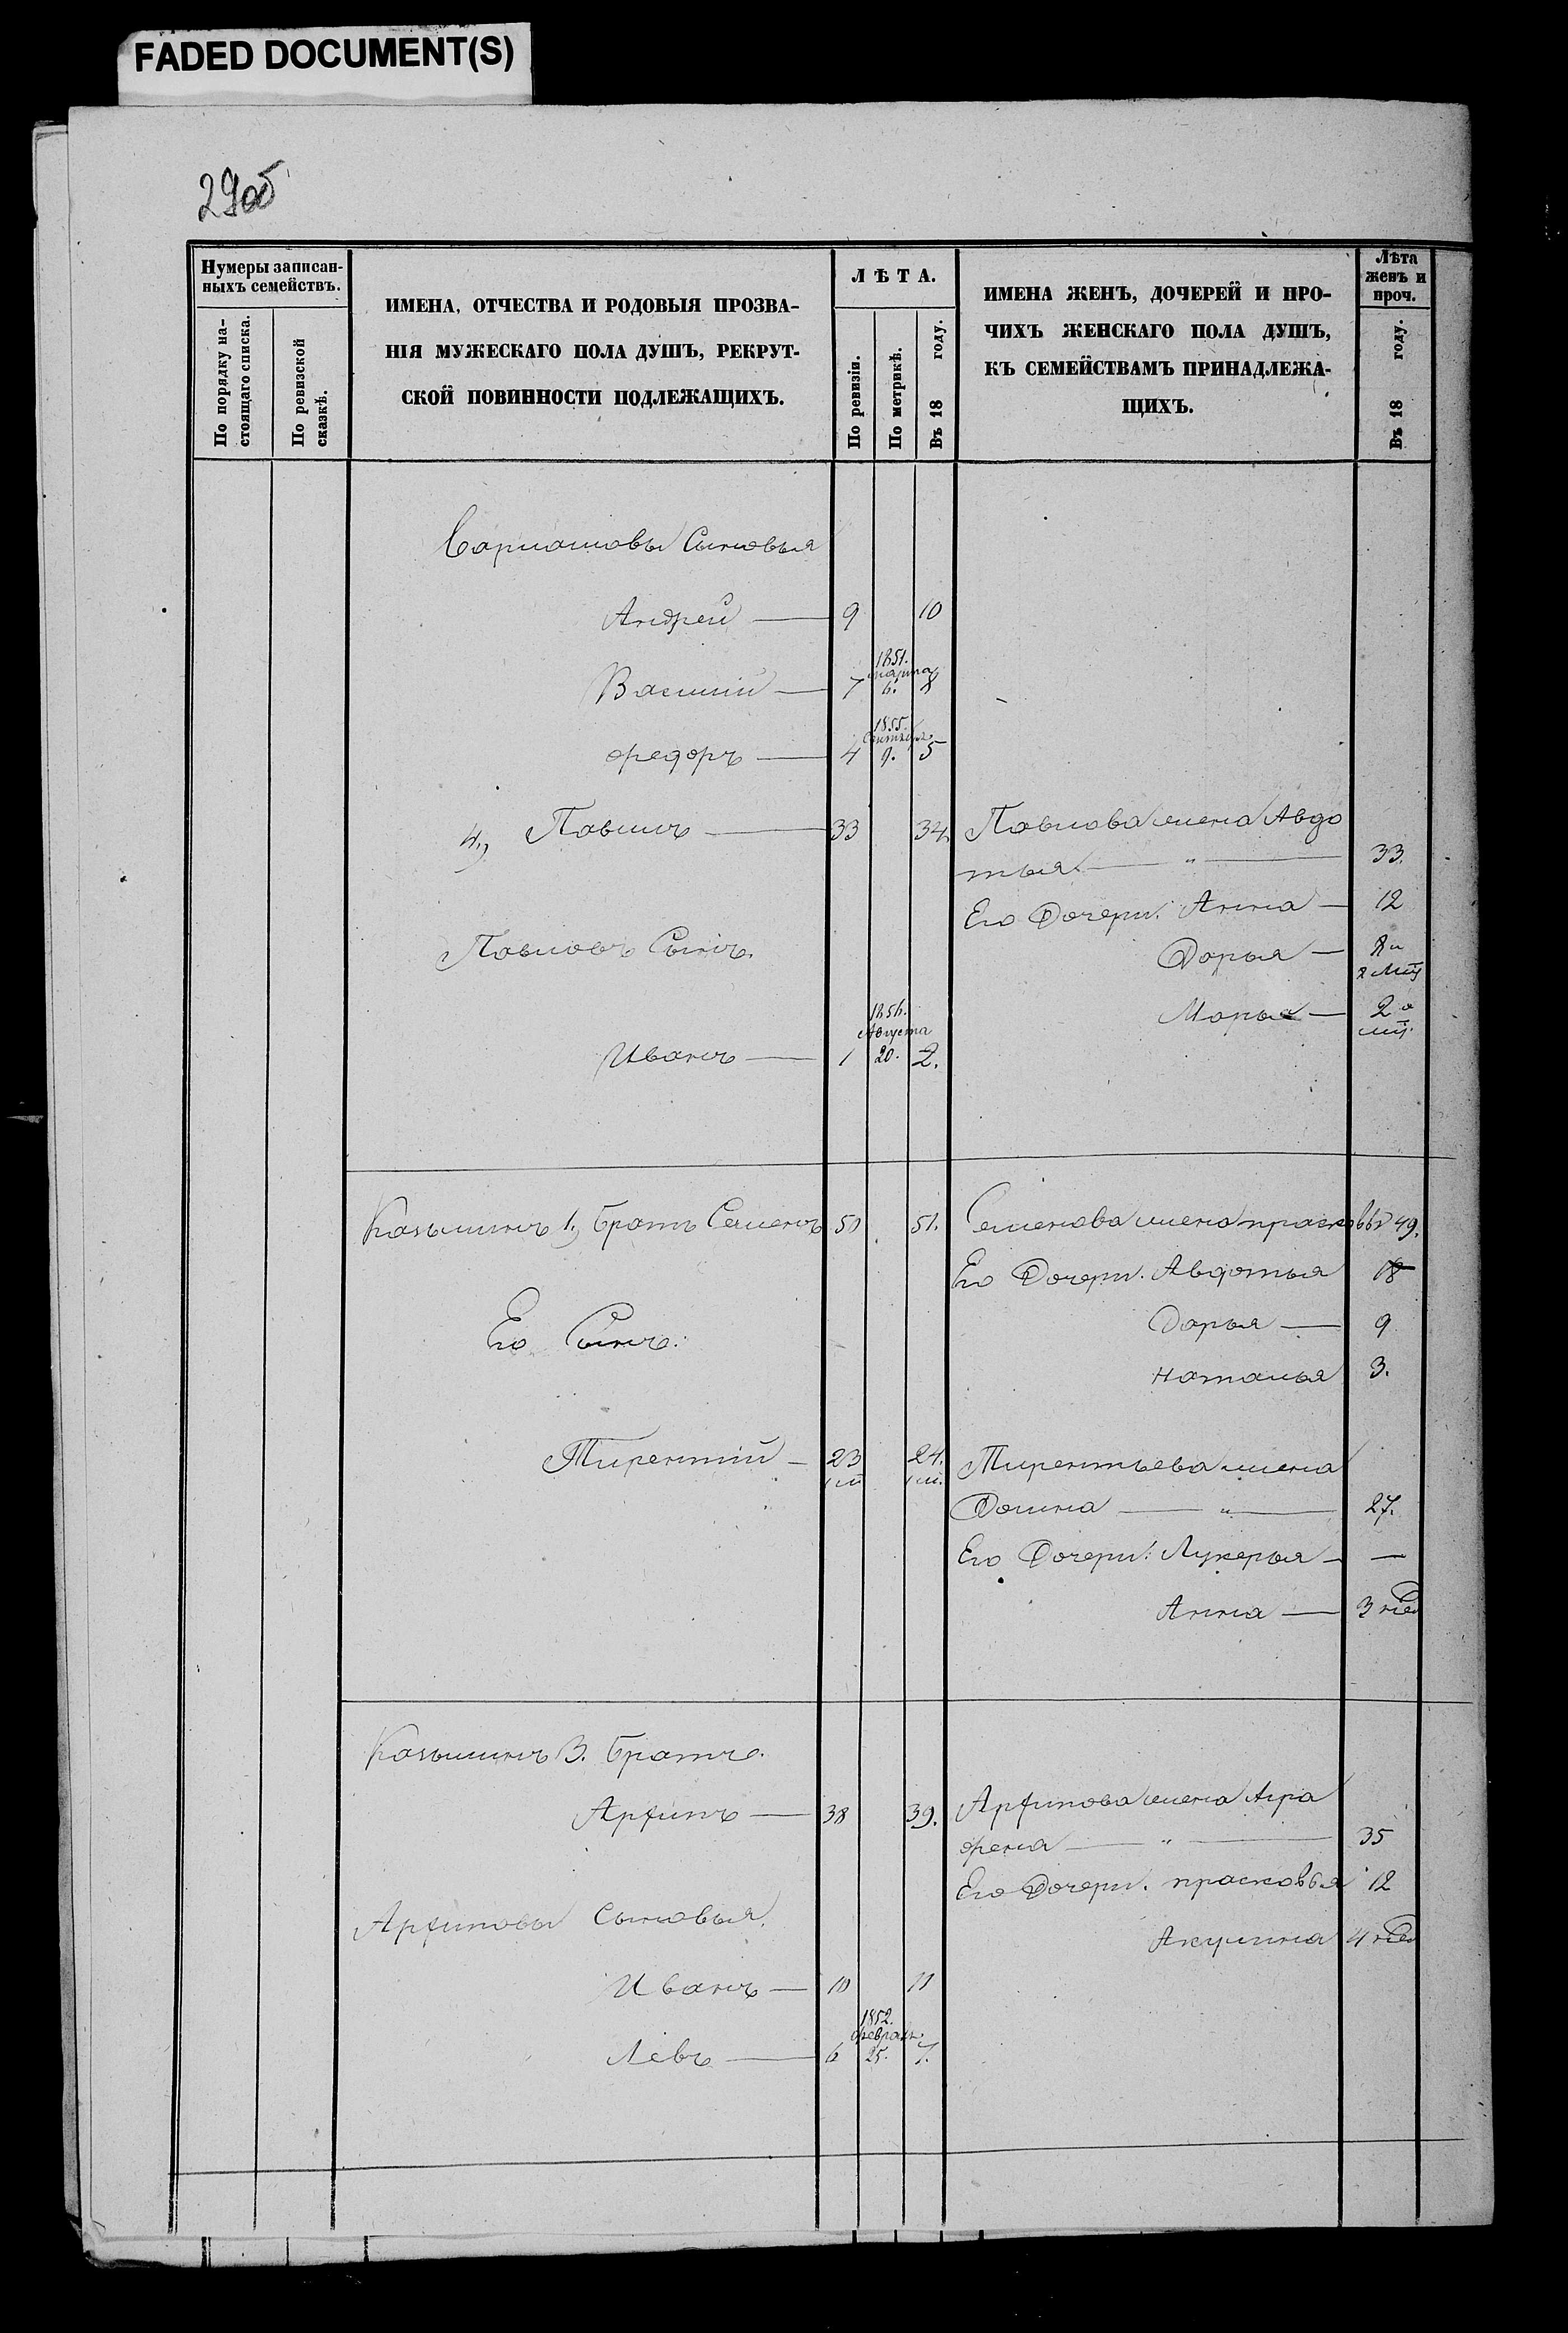 FADED DOCUMENT(S)
29об
Нумеры записан-
ныхъ семействъ.
По порядку на-
стоящаго списка.
По ревизской
сказкѣ.
ИМЕНА, ОТЧЕСТВА И РОДОВЫЯ ПРОЗВА-
НІЯ МУЖЕСКАГО ПОЛА ДУШЪ, РЕКРУТ-
СКОЙ ПОВИННОСТИ ПОДЛЕЖАЩИХЪ.
ЛѢТА.
По ревизіи.
По метрикѣ.
Въ 18 году.
ИМЕНА ЖЕНЪ, ДОЧЕРЕЙ И ПРО-
ЧИХЪ ЖЕНСКАГО ПОЛА ДУШЪ,
КЪ СЕМЕЙСТВАМЪ ПРИНАДЛЕЖА-
ЩИХЪ.
Лѣта
женъ и
проч.
Въ 18 году.
Сыновья
Андрей — 9 10
1851.
марта
Василий — 7 6. 8
1855.
Сентябр.
Федоръ — 4 9. 5
4.) Павилъ — 33 34. Павлова жена Авдо
тья — " — 33.
Его Дочери: Анна — 12
Павловъ Сынъ. Дарья — 8 и
2 мцъ
Марья — 2 а
мц.
1856.
Августа
Иванъ — 1 20. 2.
Казьминъ 1.) братъ Семенъ 50 51. Семенова жена прасковья 49.
Его Дочери. Авдотья 18
Его Сынъ: Дарья — 9
наталья 3.
Тирентий — 23 24. Тирентьева жена
Домна — " — 27.
Его Дочери: Лукерья — —
Анна — 3 нед
Казьминъ 3. братъ.
Арфипъ — 38 39. Арфипова жена Агра
фена — " — 35
Его Дочери. прасковья 12
Арфиповы Сыновья. Акулина 4 нед
Иванъ — 10 11
1852.
Феврал.
Левъ — 6 25. 7.